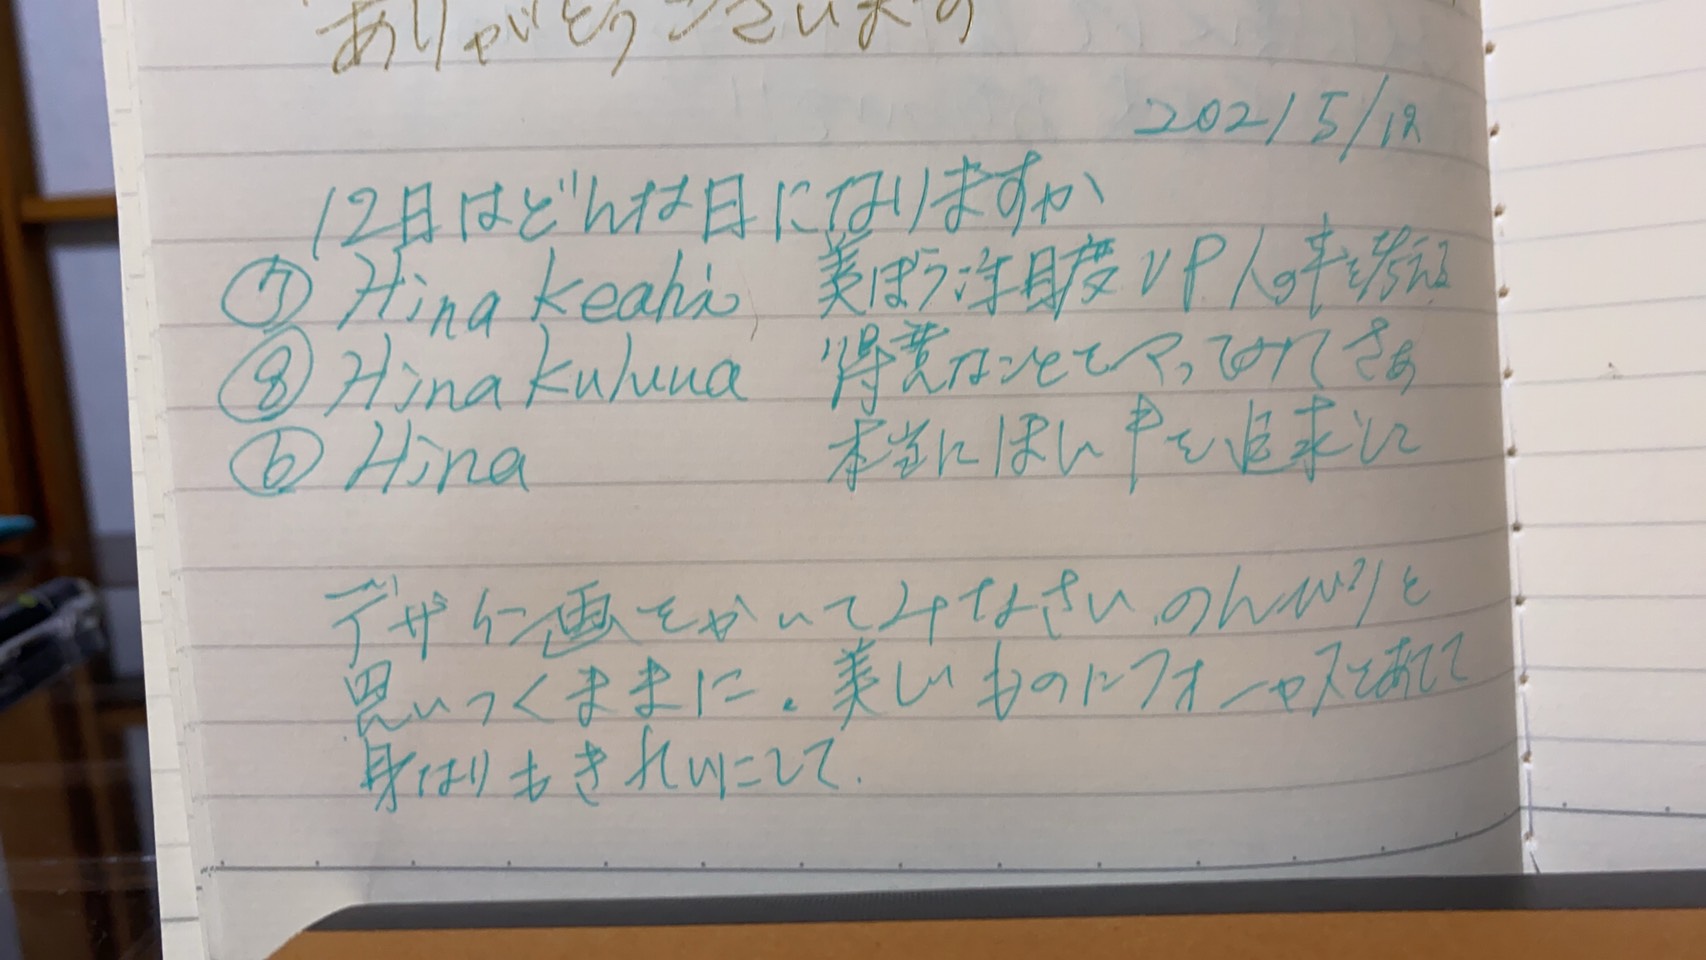 ありがとうございます
2021 5/12
12日はどんな日になりますか
⑦ Hina Keahi 美ぼう注目度UP 人の事を考える
⑧ Hina Kuluua 得意なことをやってみてさぁ
⑥ Hina 本当にほしい事を追求して
デザイン画をかいてみなさい、のんびりと
思いつくままに。美しいものにフォーカスをあてて
身なりもきれいにして.